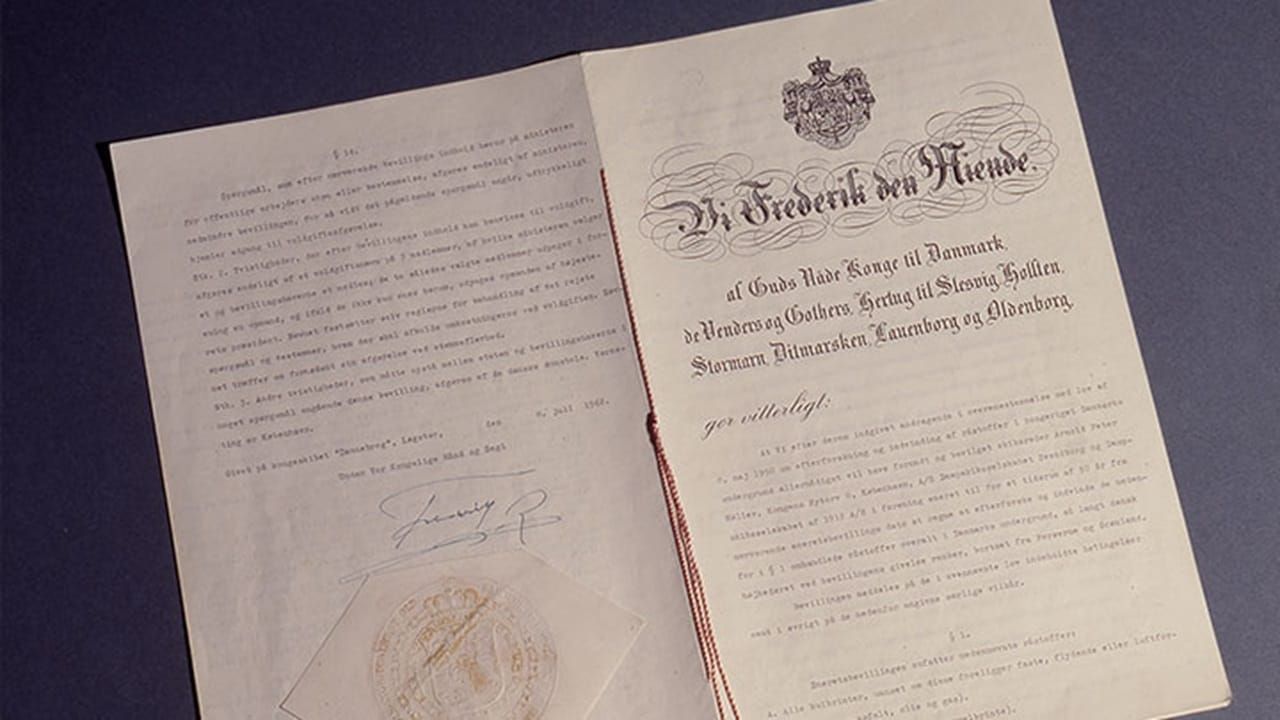 § 14.
Spørgsmål, som efter nærværende bevillings indhold beror på ministeren
for offentlige arbejders skøn eller bestemmelse, afgøres endeligt af ministeren,
medmindre bevillingen, for så vidt det pågældende spørgsmål angår, udtrykkeligt
hjemler adgang til voldgiftsafgørelse.
Stk. 2. Tvistigheder, der efter bevillingens indhold kan henvises til voldgift,
afgøres endeligt af et voldgiftsnævn på 3 medlemmer, af hvilke ministeren vælger
et og bevillingshaverne et medlem; de to således valgte medlemmer udpeger i for-
ening en opmand, og ifald de ikke kan enes herom, udpeges opmanden af højeste-
rets præsident. Nævnet fastsætter selv reglerne for behandling af det rejste
spørgsmål og bestemmer, hvem der skal afholde omkostningerne ved voldgiften.
net træffer om fornødent sin afgørelse ved stemmeflerhed.
Stk. 3. Andre tvistigheder, som måtte opstå mellem staten og bevillingshaverne i
noget spørgsmål angående denne bevilling, afgøres af de danske domstole.
ting er København.
Givet på kongeskibet "Dannebrog", Løgstør, den 8. juli 1962.
Under Vor Kongelige Hånd og Segl
Frederik R
Vi Frederik den Niende,
af Guds Nåde Konge til Danmark,
de Venders og Gothers, Hertug til Slesvig, Holsten,
Stormarn, Ditmarsken, Lauenborg og Oldenborg,
gør vitterligt:
At Vi efter derom indgivet andragende i overensstemmelse med lov af
8. maj 1950 om efterforskning og indvinding af råstoffer i kongeriget Danmarks
undergrund allernådigst vil have forundt og bevilget skibsreder Arnold Peter
Møller, Kongens Nytorv 8, København, A/S Dampskibsselskabet Svendborg og Damp-
skibsselskabet af 1912 A/S i forening eneret til for et tidsrum af 50 år fra
nærværende eneretsbevillings dato at regne at efterforske og indvinde de neden-
for i § 1 omhandlede råstoffer overalt i Danmarks undergrund, så langt dansk
højhedsret ved bevillingens givelse rækker, bortset fra Færøerne og Grønland.
Bevillingen meddeles på de i ovennævnte lov indeholdte betingelser
samt i øvrigt på de nedenfor angivne særlige vilkår.
§ 1.
Eneretsbevillingen omfatter nedennævnte råstoffer:
A. Alle kulbrinter, uanset om disse foreligger faste, flydende eller luftfor-
asfalt, olie og gas).